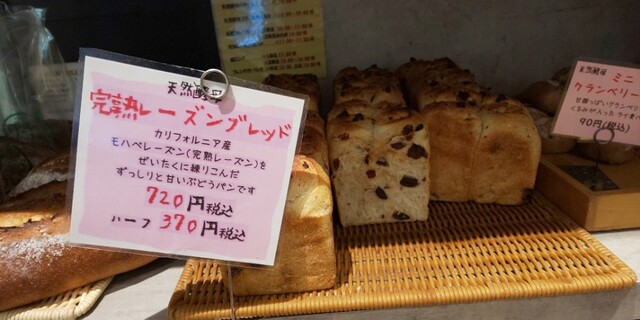 天然酵母
完熟レーズンブレッド
カリフォルニア産
モハベレーズン(完熟レーズン)を
ぜいたくに練りこんだ
ずっしりと甘いぶどうパンです
720円税込
ハーフ 370円税込
天然酵母 ミニ
クランベリー
甘酸っぱいクランベリ
くるみが入った ライ麦パ
90円(税込)